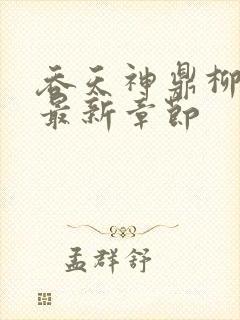 吞天神鼎柳
最新章節
孟群舒